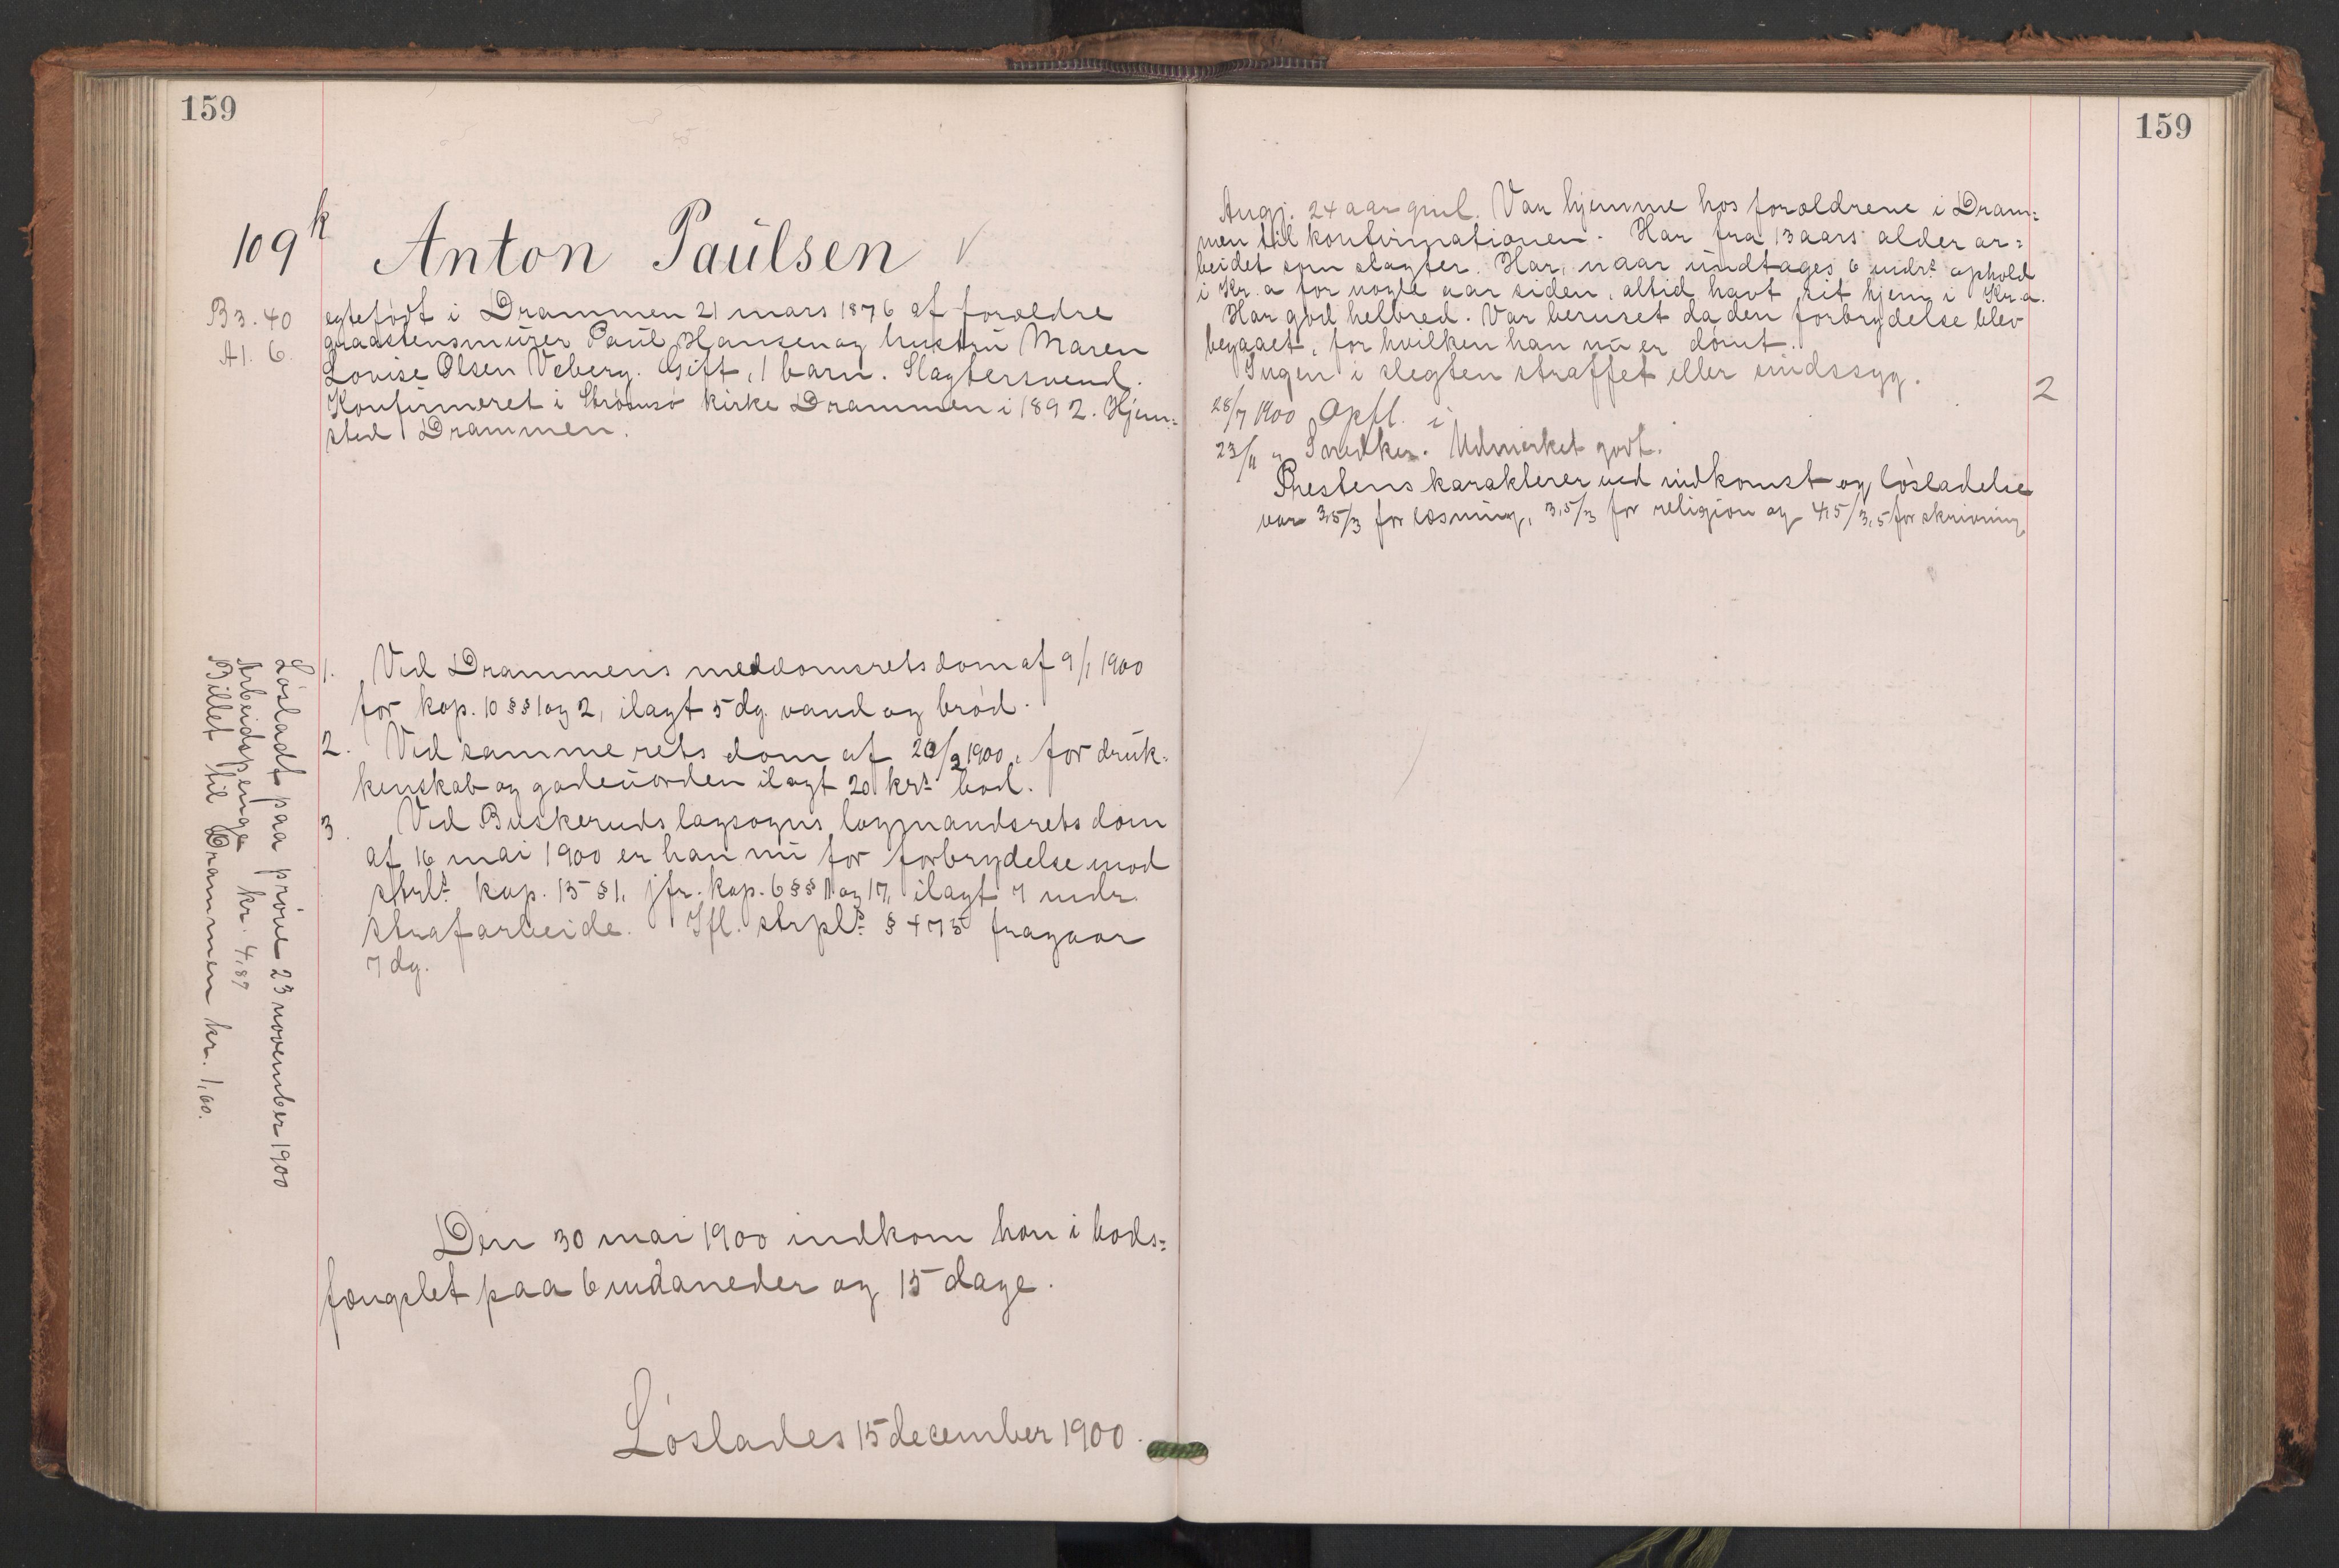 159
109 k Anton Paulsen V
B 3. 40
A1. 6.
egtefødt i Drammen 21 mars 1876 af forældre
graastensmurer Paul Hansen og hustru Maren
Lovise Olsen Veberg. Gift, 1 barn. Slagtersvend.
Konfirmeret i Strømsø kirke Drammen i 1892. Hjem-
sted Drammen.
1. Ved Drammens meddomsrets dom af 9/1 1900
for kap. 10 §§ 1 og 2, ilagt 5 dg. vand og brød.
2. Ved samme rets dom af 20/2 1900, for druk-
kenskab og gadeuorden ilagt 20 krs bod.
3. Ved Buskeruds lagsogns lagmandsrets dom
af 16 mai 1900 er han nu for forbrydelse mod
strls kap. 15 § 1, jfr. kap. 6 §§ 11 og 17, ilagt 7 mdr.
strafarbeide. Ifl. strpls § 475 fragaar
7 dg.
Løsladt paa prøve 23 november 1900
Arbeidspenge kr. 4,87
Billet til Drammen kr. 1,60.
Den 30 mai 1900 indkom han i bods=
fængslet paa 6 maaneder og 15 dage.
Løslades 15 december 1900.
159
Angj. 24 aar gml. Var hjemme hos forældrene i Dram=
men til konfirmationen. Har fra 13 aars alder ar=
beidet som slagter. Har, naar undtages 6 mdrs ophold
i Kr.a for nogle aar siden, altid havt sit hjem i Kr.a.
Har god helbred. Var beruset da den forbrydelse blev
begaaet, for hvilken han nu er dømt.
Ingen i slegten straffet eller sindssyg.
2
28/7 1900 Opfl. i
23/11 " Snedker. Udmerket godt.
Prestens karakterer ved indkomst og løsladelse
var 3,5/3 for læsning, 3,5/3 for religion og 4,5/3,5 for skrivning